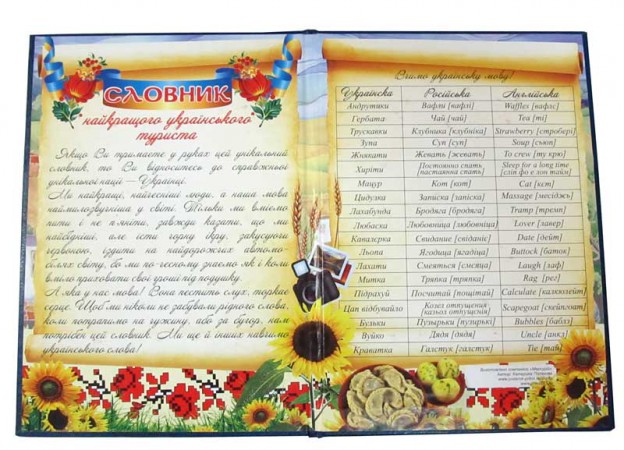 СЛОВНИК
найкращого українського
туриста
Якщо Ви тримаєте у руках цей унікальний
словник, то Ви відноситесь до справжньої
унікальної нації – Українці.
Ми найкращі, найчесніші люди, а наша мова
наймилозвучніша у світі. Тільки ми вміємо
пити і не п'яніти, завжди казати, що ми
найбідніші, але їсти чорну ікру, закусюючи
червоною, їздити на найдорожчих автомо-
білях світу, бо ми по-чесному знаємо як і коли
вміло приховати свої гроші під подушку.
А яка у нас мова! Вона пестить слух, торкає
серце. Щоб ми ніколи не забували рідного слова,
коли потрапимо на чужину, або за бугор, нам
потрібен цей словник. Ми ще й інших навчимо
українського слова!
Вчимо українську мову!
Українска Російська Англійська
Андрутяки Вафли [вафлі] Waffles [вафлс]
Гербата Чай [чай] Tea [ті]
Трускавки Клубника [клубніка] Strawberry [стробері]
Зупа Суп [суп] Soup [сьюп]
Жвякати Жевать [жевать] To crew [ту крю]
Хиріти Постоянно спать [настаянна спать] Sleep for a long time [сліп фо е лон тайм]
Мацур Кот [кот] Cat [кет]
Цидулка Записка [запіска] Massage [месідж]
Лахабунда Бродяга [бродяга] Tramp [тремп]
Любаска Любовница [любовніца] Lover [лавер]
Кавалєрка Свидание [свіданіє] Date [дейт]
Льопа Ягодица [ягадіца] Buttock [баток]
Лахати Смеяться [смеяца] Laugh [лаф]
Митка Тряпка [тряпка] Rag [рег]
Підрахуй Посчитай [пощітай] Calculate [калкюлейт]
Цап відбувайло Козел отпущения [казьол отпущенія] Scapegoat [скейпгоат]
Бульки Пузырьки [пузирькі] Bubbles [баблз]
Вуйко Дядя [дядя] Uncle [анкл]
Краватка Галстук [галстук] Tie [тай]